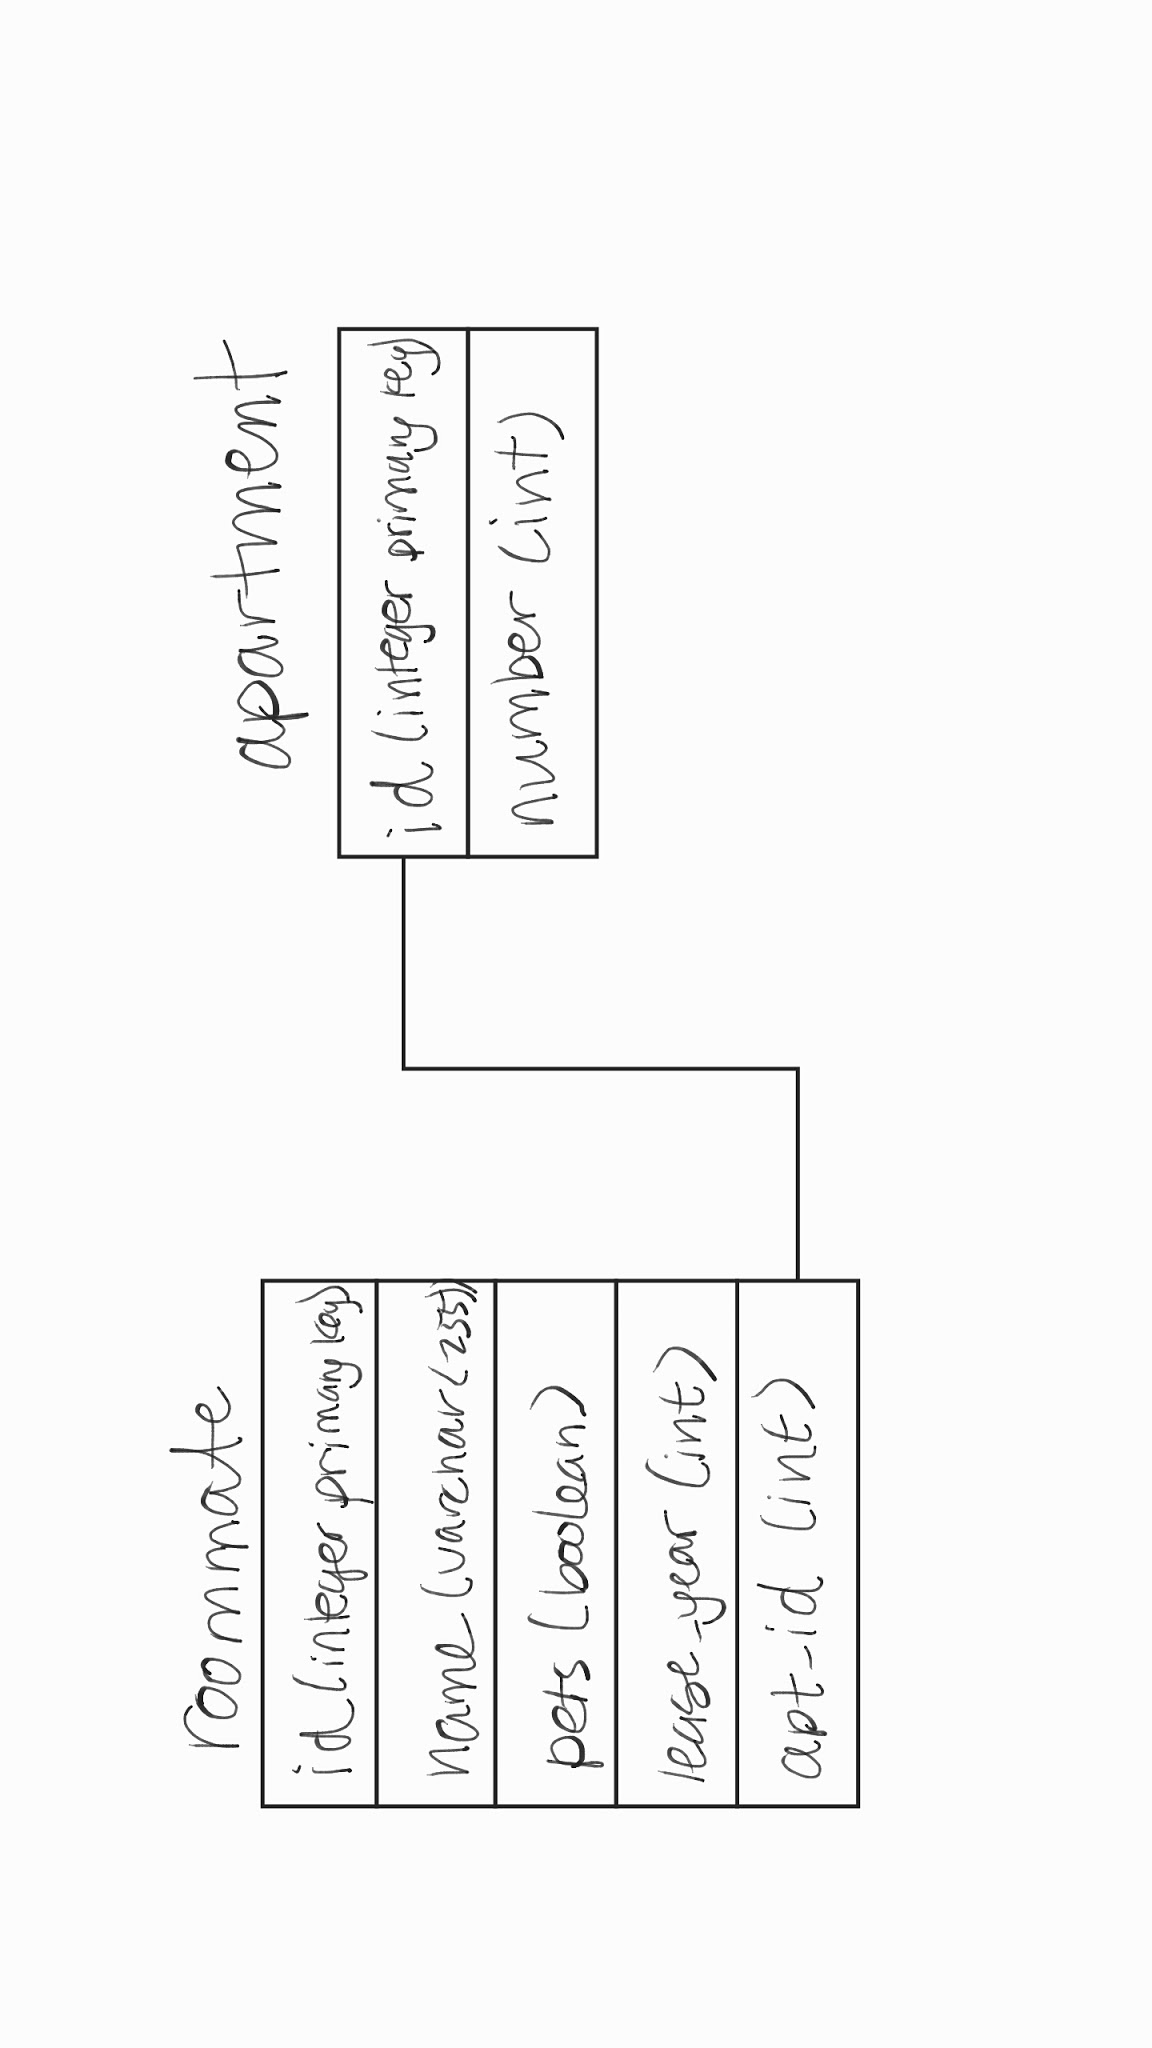 roommate
id (integer primary key)
name (varchar(255))
pets (boolean)
lease_year (int)
apt_id (int)
apartment
id (integer primary key)
number (int)